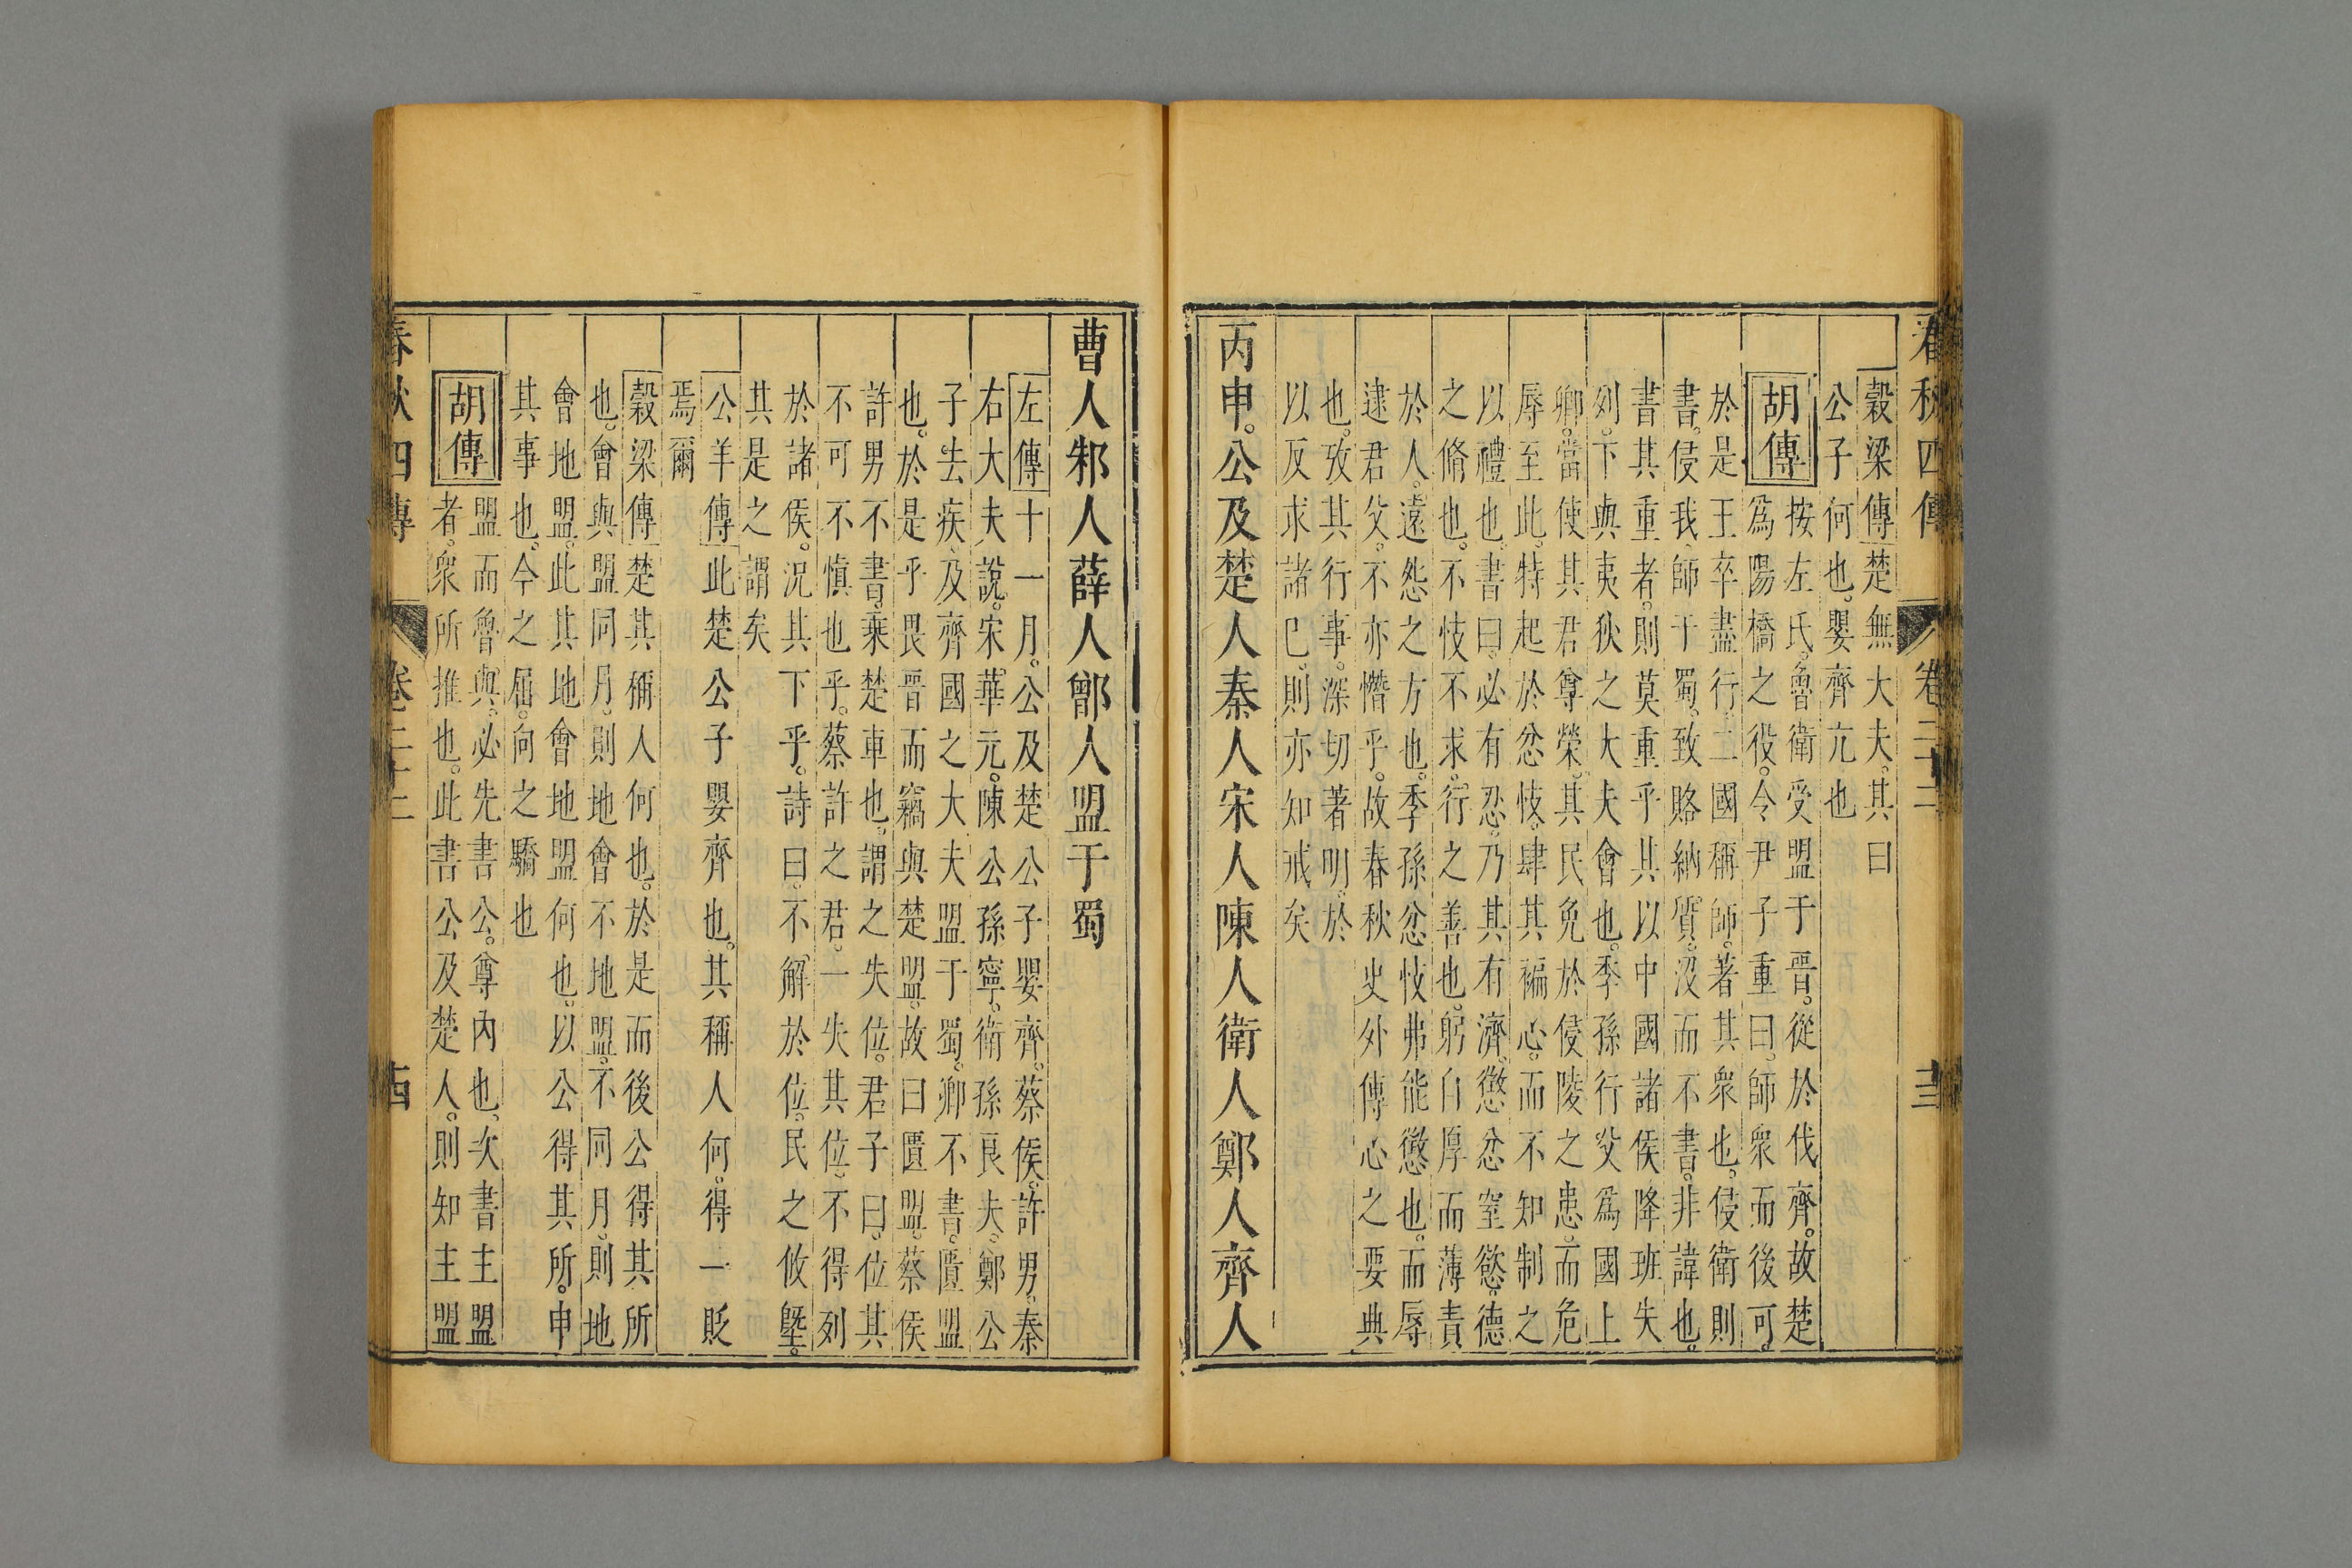 春秋四傳 卷二十二 十三
穀梁傳楚無大夫。其曰
公子何也。嬰齊亢也
胡傳
按左氏。魯衛受盟于晉。從於伐齊。故楚
爲陽橋之役。令尹子重曰。師衆而後可。
於是王卒盡行。二國稱師。著其衆也。侵衛則
書。侵我師于蜀。致賂納質。沒而不書。非諱也。
書其重者。則莫重乎其以中國諸侯降班失
列。下與夷狄之大夫會也。季孫行父爲國上
卿。當使其君尊榮。其民免於侵陵之患。而危
辱至此。特起於忿忮。肆其褊心。而不知制之
以禮也。書曰。必有忍。乃其有濟。懲忿窒慾。德
之脩也。不忮不求。行之善也。躬自厚而薄責
於人。遠怨之方也。季孫忿忮弗能懲也。而辱
逮君父。不亦憯乎。故春秋史外傳心之要典
也。攷其行事。深切著明。於
以反求諸已。則亦知戒矣
丙申。公及楚人秦人宋人陳人衛人鄭人齊人
曹人邾人薛人鄫人盟于蜀
左傳十一月。公及楚公子嬰齊。蔡侯。許男。秦
右大夫說。宋華元。陳公孫寧。衛孫良夫。鄭公
子去疾。及齊國之大夫盟于蜀。卿不書。匱盟
也。於是乎畏晉而竊與楚盟。故曰匱盟。蔡侯
許男不書。乘楚車也。謂之失位。君子曰。位其
不可不愼也乎。蔡許之君。一失其位。不得列
於諸侯。况其下乎。詩曰。不解於位。民之攸墍。
其是之謂矣
公羊傳此楚公子嬰齊也。其稱人何。得一貶
焉爾
穀梁傳楚其稱人何也。於是而後公得其所
也。會與盟同月。則地會不地盟。不同月。則地
會地盟。此其地會地盟何也。以公得其所。申
其事也。今之屈。向之驕也
胡傳
盟而魯與。必先書公。尊內也。次書主盟
者。衆所推也。此書公及楚人。則知主盟
春秋四傳 卷二十二 十四